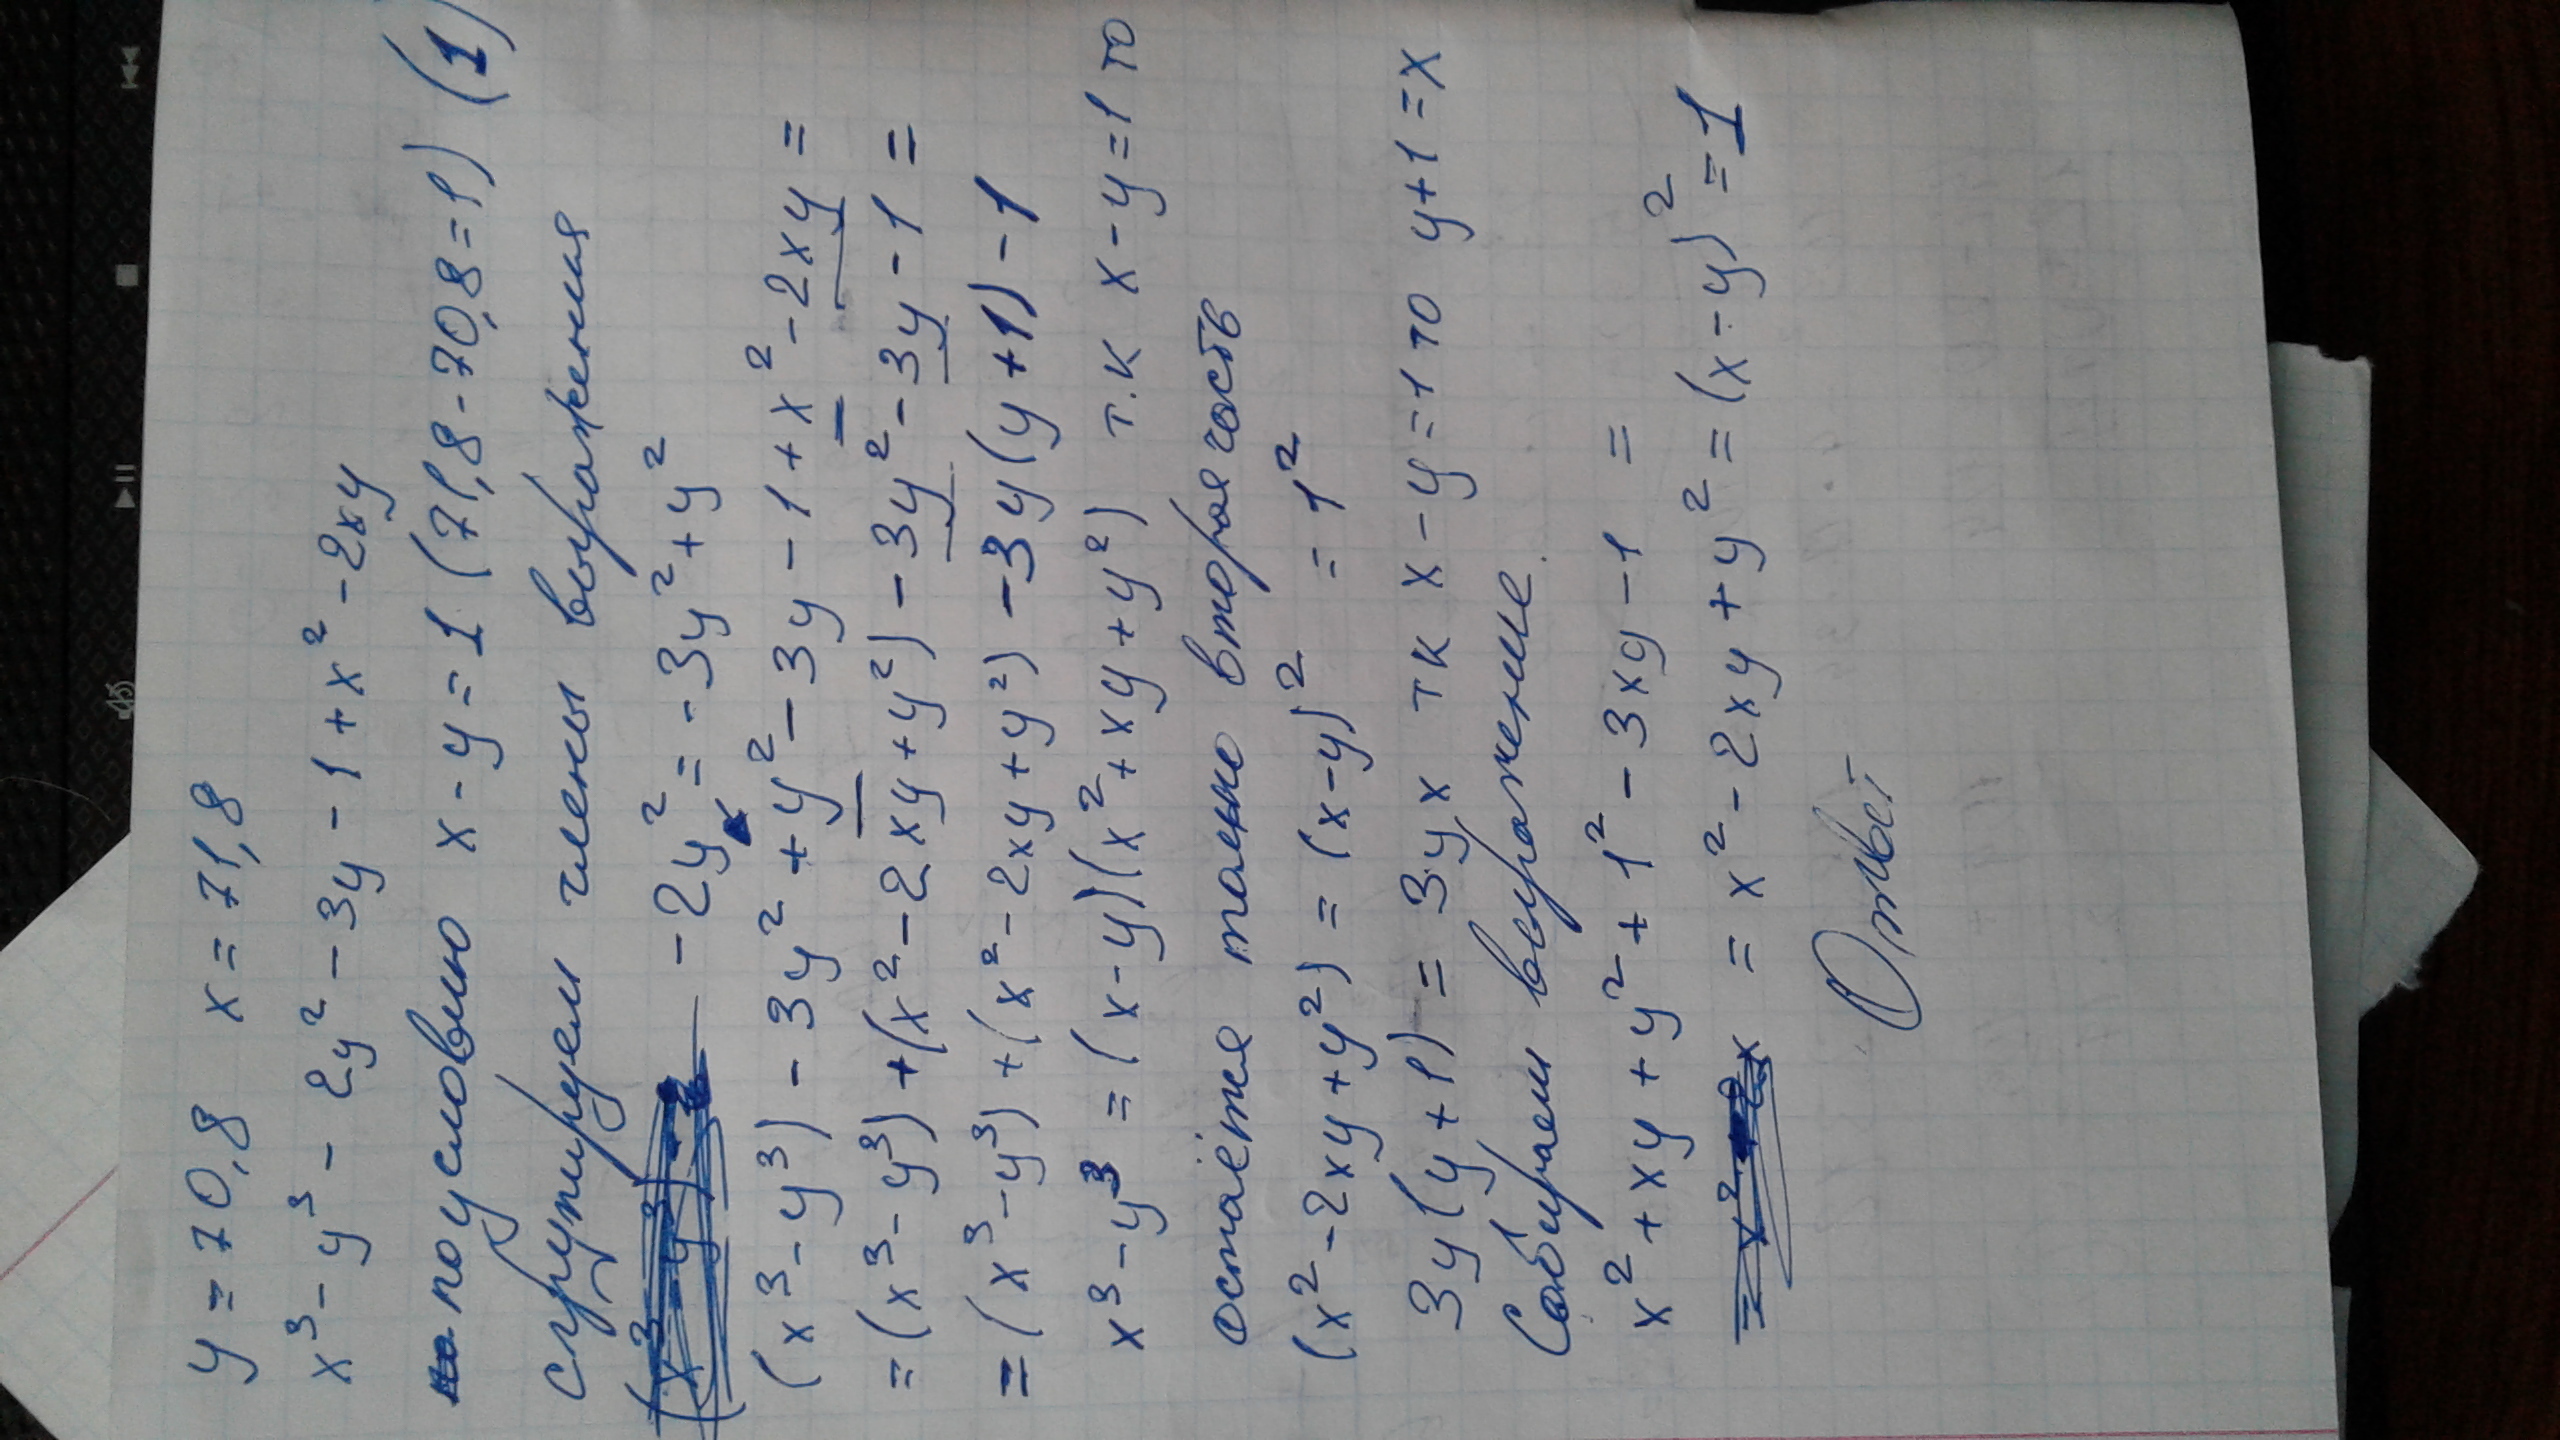 y = 70,8 x = 71,8
x³ - y³ - 2y² - 3y - 1 + x² - 2xy
по условию x - y = 1 (71,8 - 70,8 = 1) (1)
сгрупируем члены выражения
- 2y² = - 3y² + y²
(x³ - y³) - 3y² + y² - 3y - 1 + x² - 2xy =
= (x³ - y³) + (x² - 2xy + y²) - 3y² - 3y - 1 =
= (x³ - y³) + (x² - 2xy + y²) - 3y(y + 1) - 1
x³ - y³ = (x - y)(x² + xy + y²) т.к x - y = 1 то
остаётся только вторая часть
(x² - 2xy + y²) = (x - y)² = 1²
3y(y + 1) = 3yx тк x - y = 1 то y + 1 = x
Собираем выражение.
x² + xy + y² + 1² - 3xy - 1 =
= x² - 2xy + y² = (x - y)² = 1
Ответ